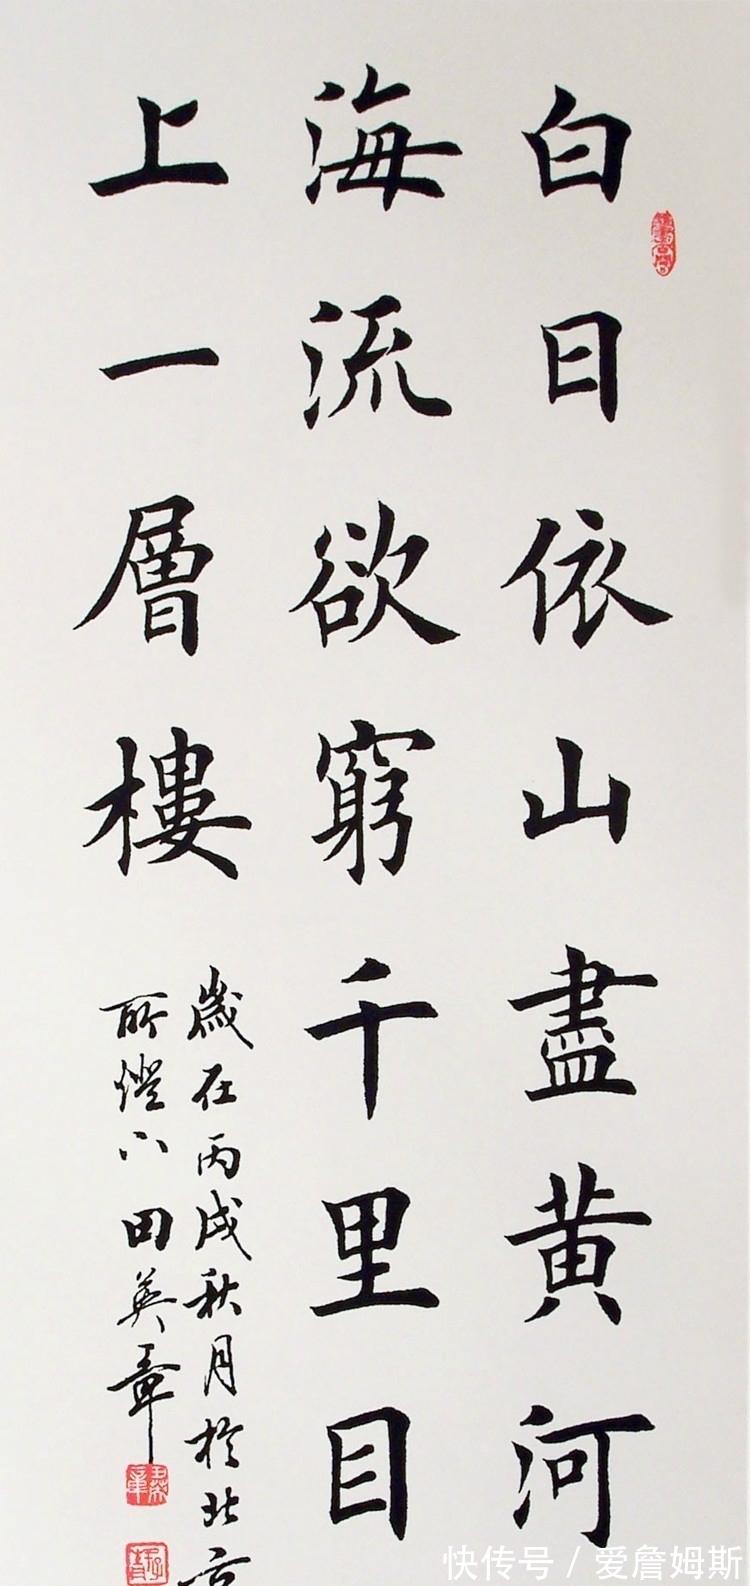 白日依山盡黄河
海流欲窮千里目
上一層樓
歲在丙戌秋月於北京
所燈下田英章
快传号 / 爱詹姆斯